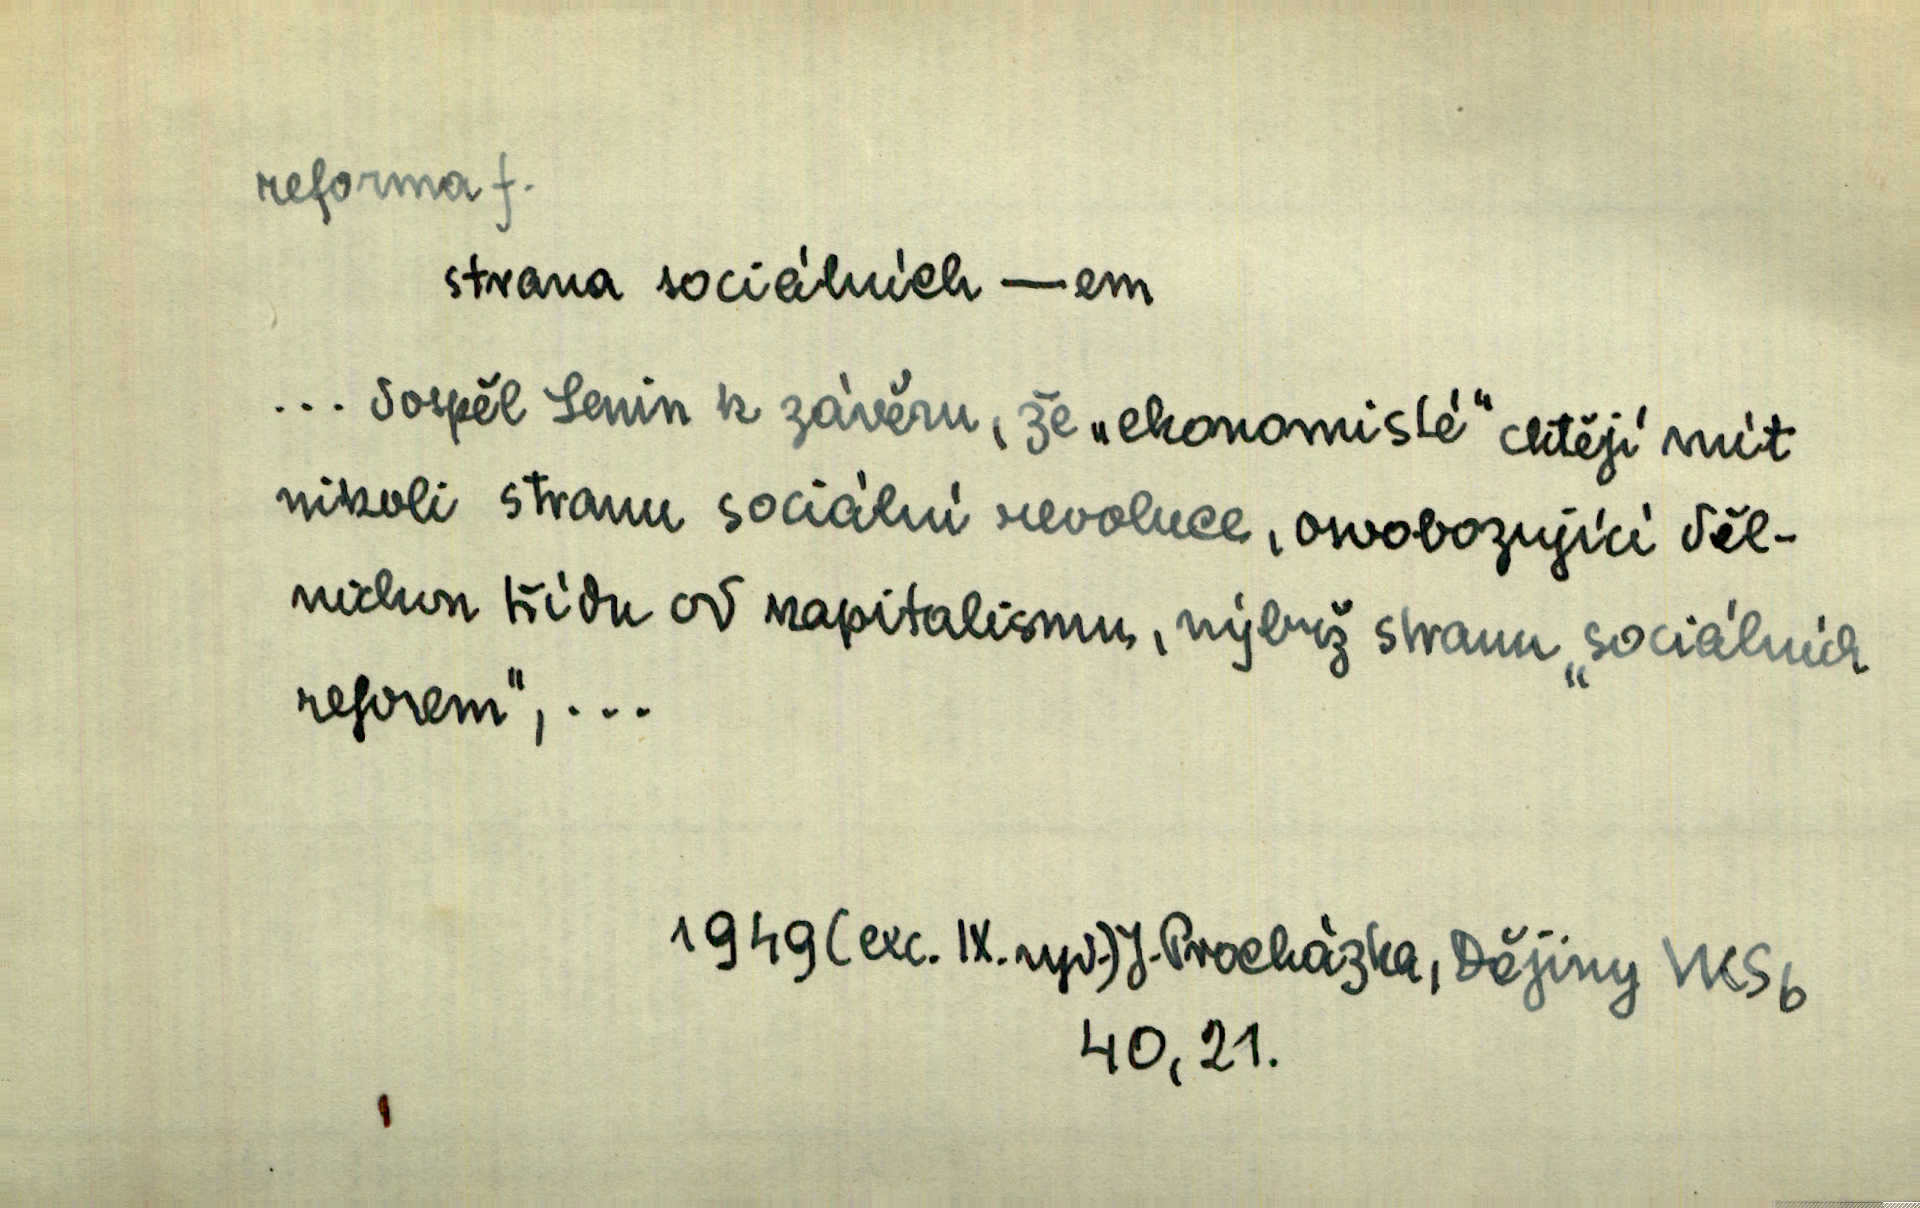 reforma f.
strana sociálních — em
... dospěl Lenin k závěru, že „ekonomisté“ chtějí mít
nikoli stranu sociální revoluce, osvobozující děl-
nickou třídu od kapitalismu, nýbrž stranu „sociálních
reforem“, ...
1949 (exc. IX. vyd.) J. Procházka, Dějiny VKSb
40, 21.